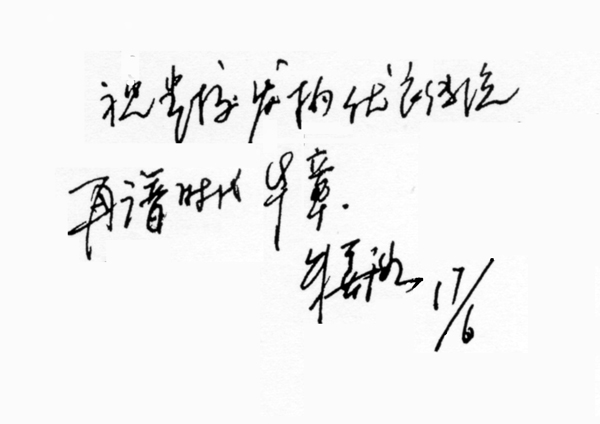 祝贵校发扬优良传统
再谱时代华章.
朱 17/6